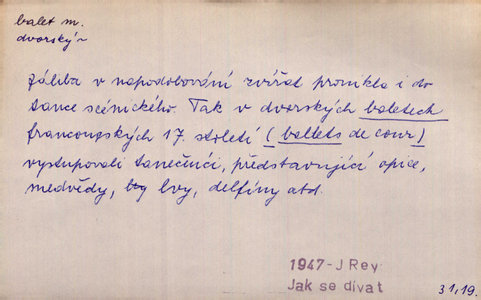 balet m.
dvorský~
záliba v napodobování zvířat pronikla i do
tance scénického. Tak v dvorských baletech
francouzských 17. století (ballets de cour)
vystupovali tanečníci, představující opice,
medvědy, lvy, delfíny atd.
1947-J Rey
Jak se dívat
31,19.